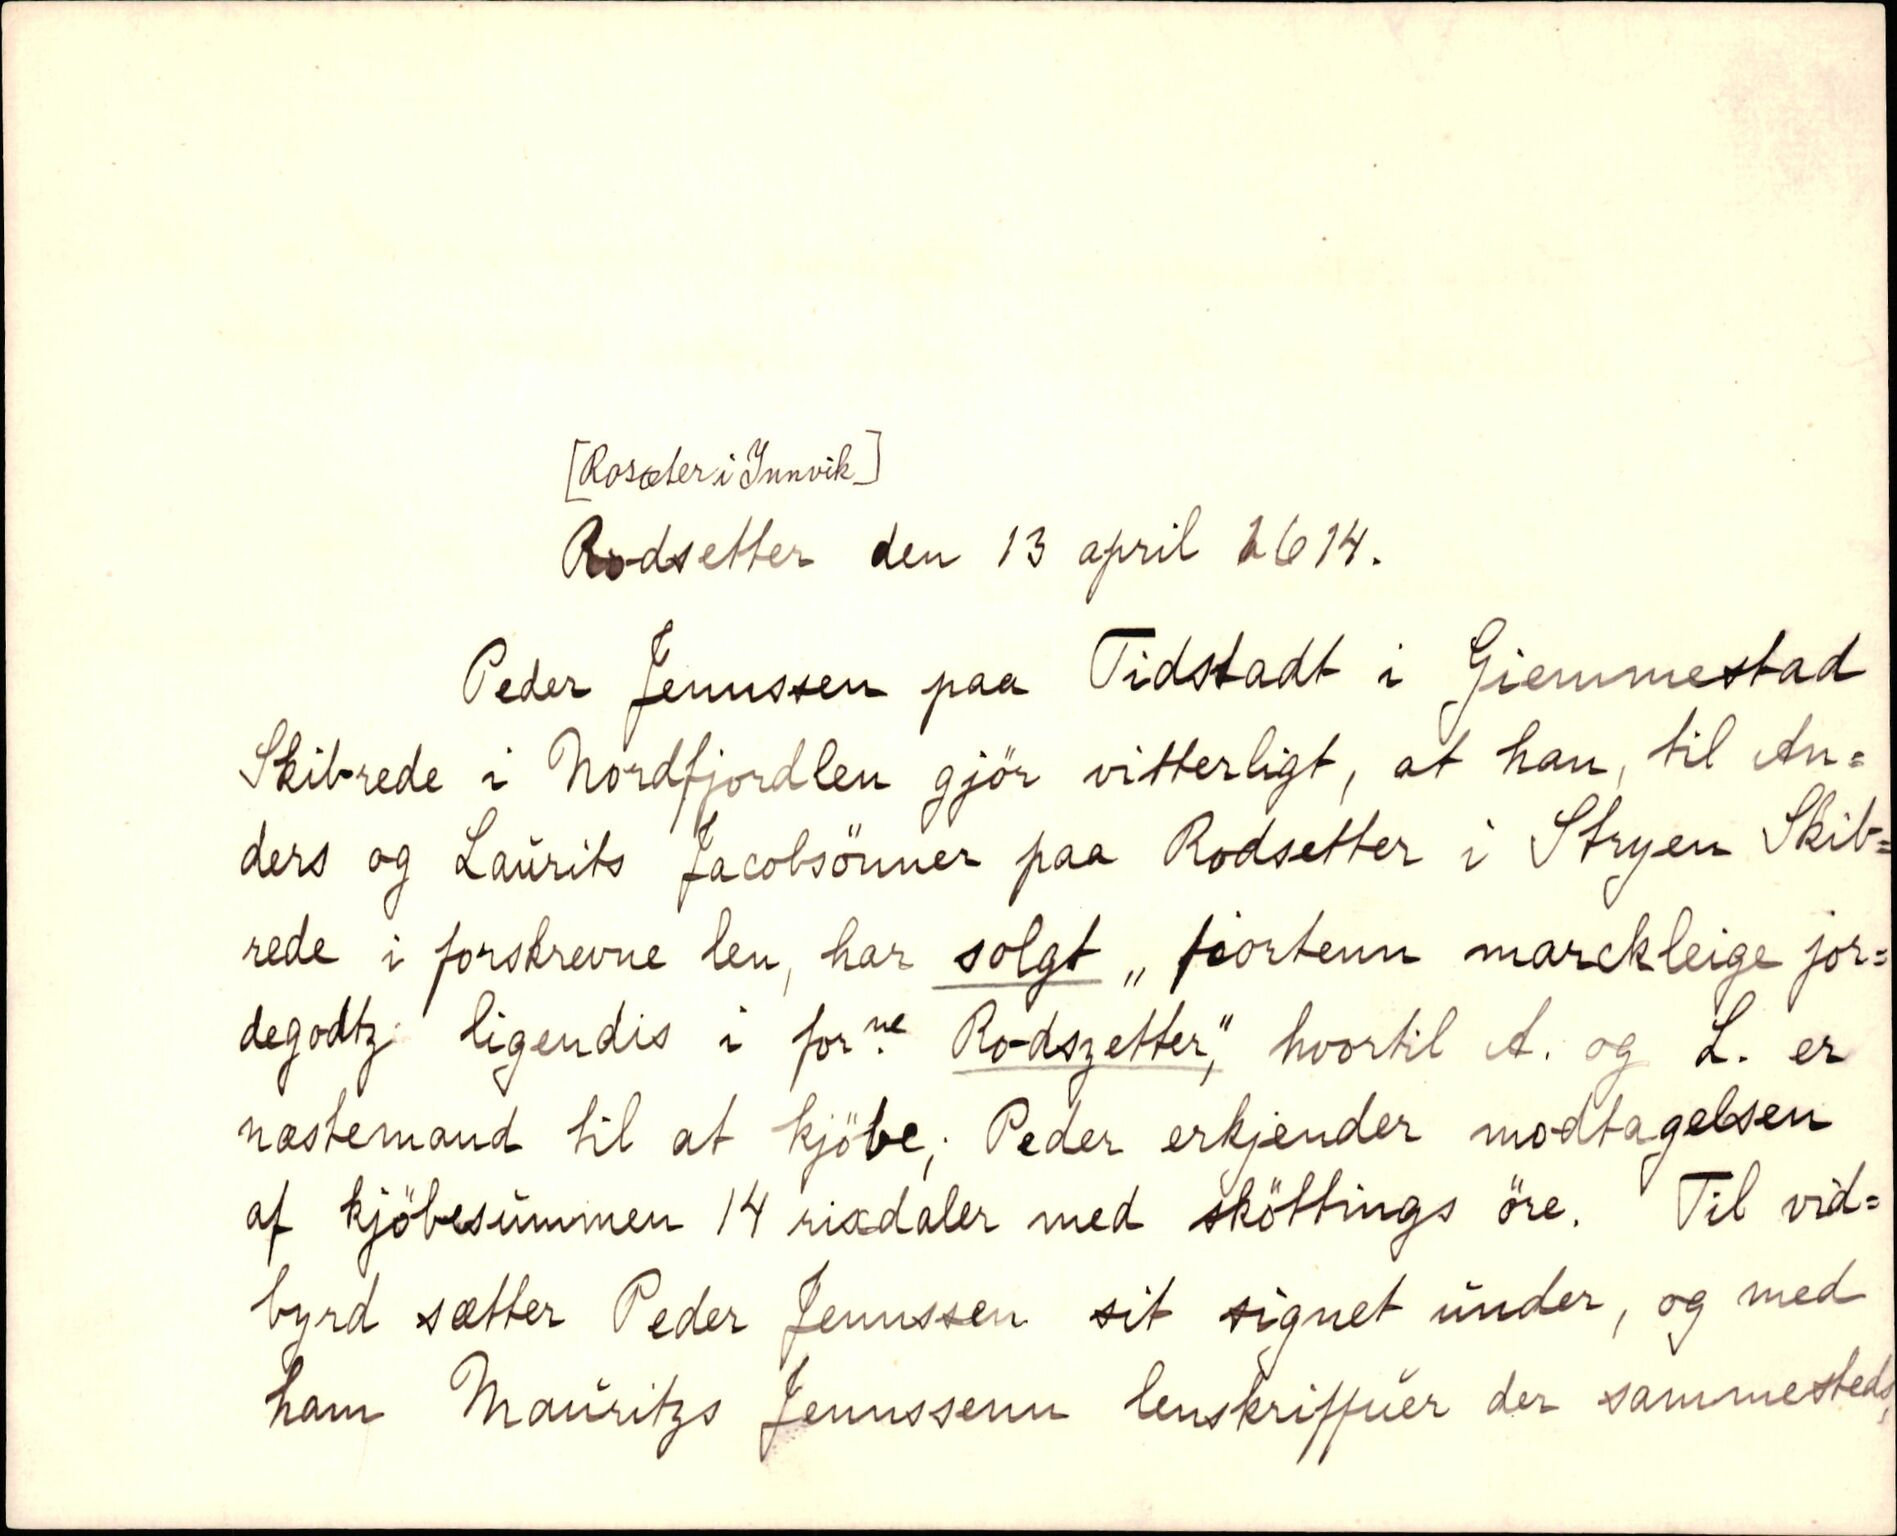 [Rosæter i Innvik]
Rodsetter den 13 april 1614.
Peder Jennssen paa Tidstadt i Giemmestad
Skibrede i Nordfjordlen gjör vitterligt, at han, til An=
ders og Laŭrits Jacobsönner paa Rodsetter i Stryen Skib=
rede i forskrevne len, har solgt „ fiortenn marckleige jor=
degodtz ligendis i for.ne Rodszetter," hvortil A. og L. er
næstemand til at kjöbe; Peder erkjender modtagelsen
af kjöbesŭmmen 14 rixdaler med sköttings öre. Til vid=
byrd sætter Peder Jennssen sit signet ŭnder, og med
ham Maŭritzs Jennssenn lenskriffŭer der sammesteds,